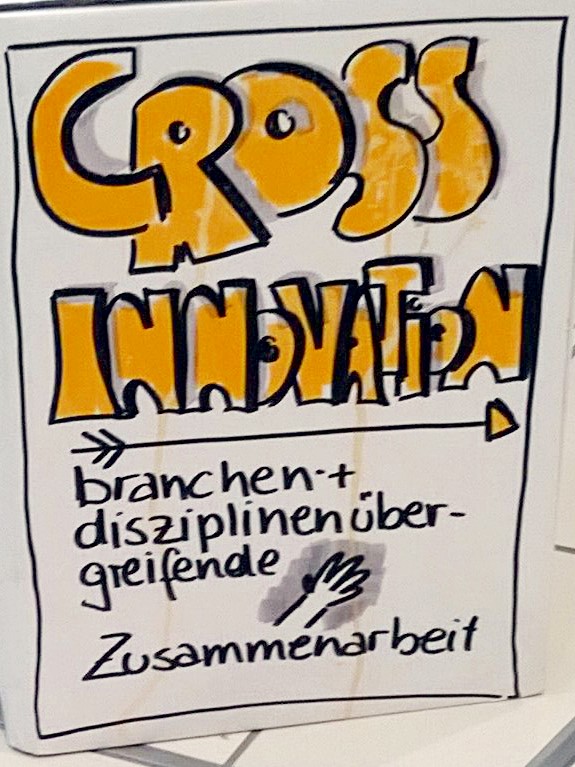 CROSS
INNOVATION
branchen-+
disziplinenüber-
greifende
Zusammenarbeit